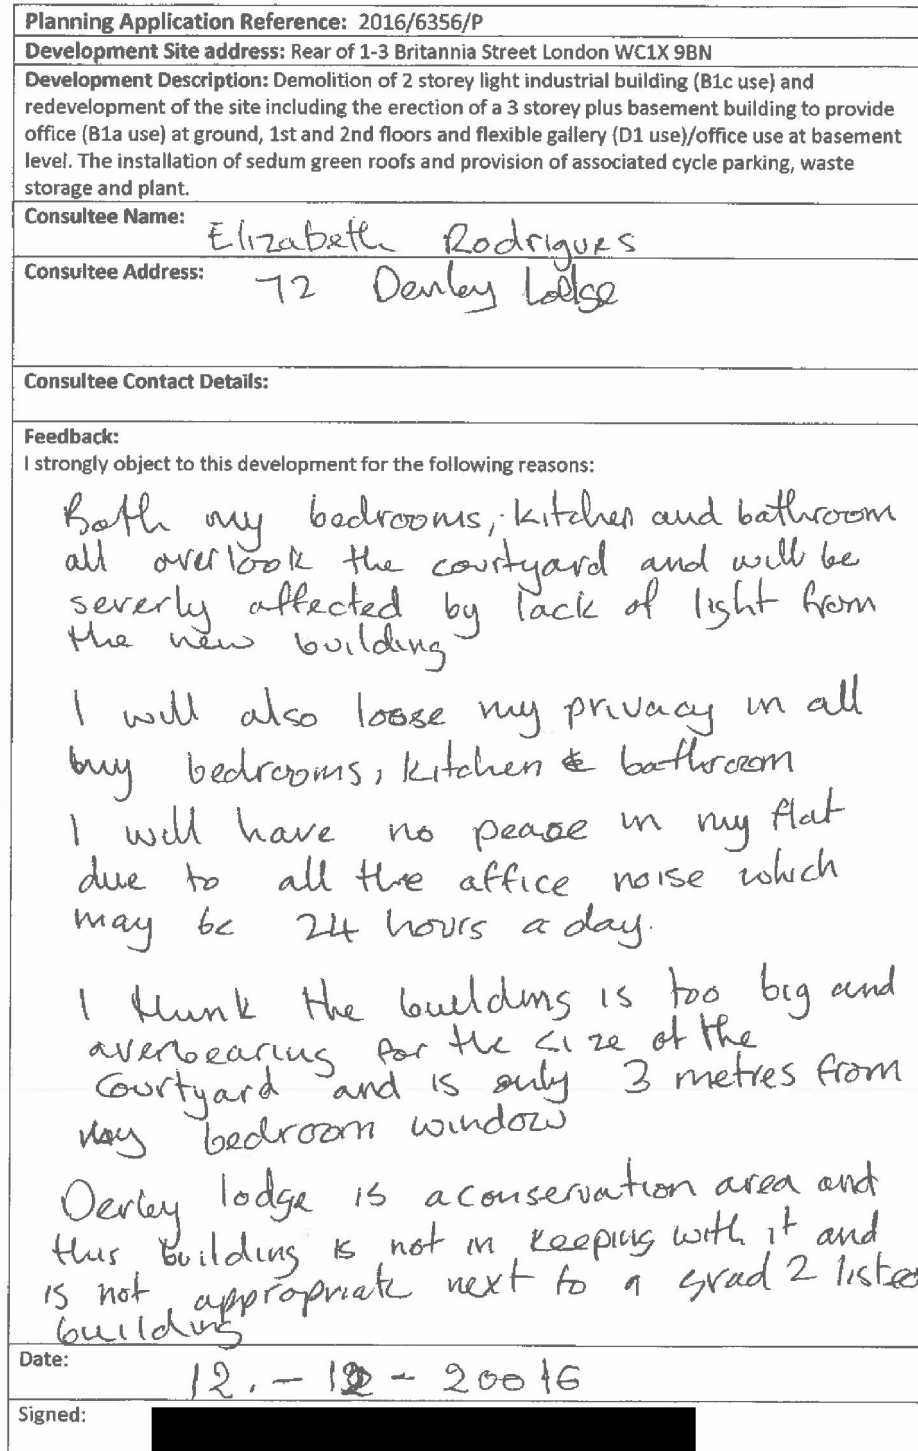 Planning Application Reference: 2016/6356/P
Development Site address: Rear of 1-3 Britannia Street London WC1X 9BN
Development Description: Demolition of 2 storey light industrial building (B1c use) and
redevelopment of the site including the erection of a 3 storey plus basement building to provide
office (B1a use) at ground, 1st and 2nd floors and flexible gallery (D1 use)/office use at basement
level. The installation of sedum green roofs and provision of associated cycle parking, waste
storage and plant.
Consultee Name: Elizabeth Rodrigues
Consultee Address: 72 Derby Lodge
Consultee Contact Details:
Feedback:
I strongly object to this development for the following reasons:
Both my bedrooms, kitchen and bathroom
all overlook the courtyard and will be
severly affected by lack of light from
the new building
I will also loose my privacy in all
my bedrooms, kitchen & bathroom
I will have no peace in my flat
due to all the office noise which
may be 24 hours a day.
I think the building is too big and
overbearing for the size of the
courtyard and is only 3 metres from
my bedroom window
Derby lodge is a conservation area and
this building is not in keeping with it and
is not appropriate next to a grad 2 listed
building
Date: 12. - 12 - 20016
Signed: